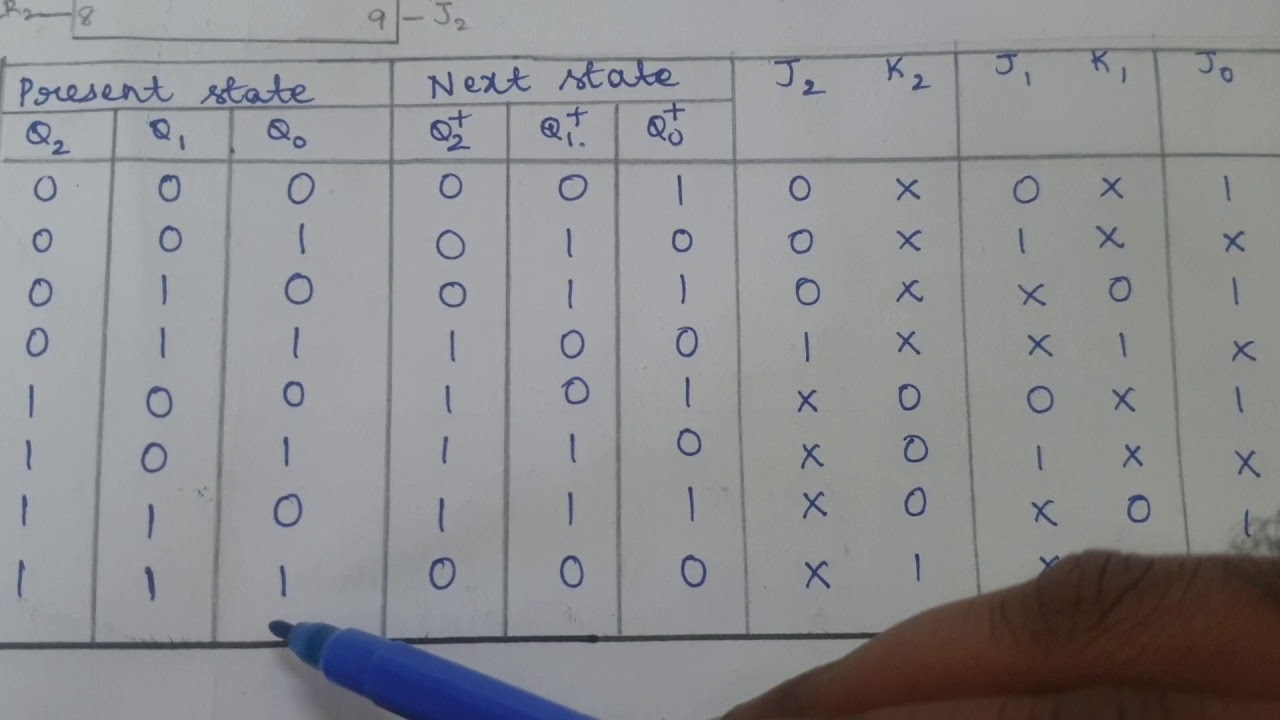 8 9 - J2
Present state Next state J2 K2 J1 K1 J0
Q2 Q1 Q0 Q2+ Q1+ Q0+
0 0 0 0 0 1 0 x 0 x 1
0 0 1 0 1 0 0 x 1 x x
0 1 0 0 1 1 0 x x 0 1
0 1 1 1 0 0 1 x x 1 x
1 0 0 1 0 1 x 0 0 x 1
1 0 1 1 1 0 x 0 1 x x
1 1 0 1 1 1 x 0 x 0 1
1 1 1 0 0 0 x 1 x